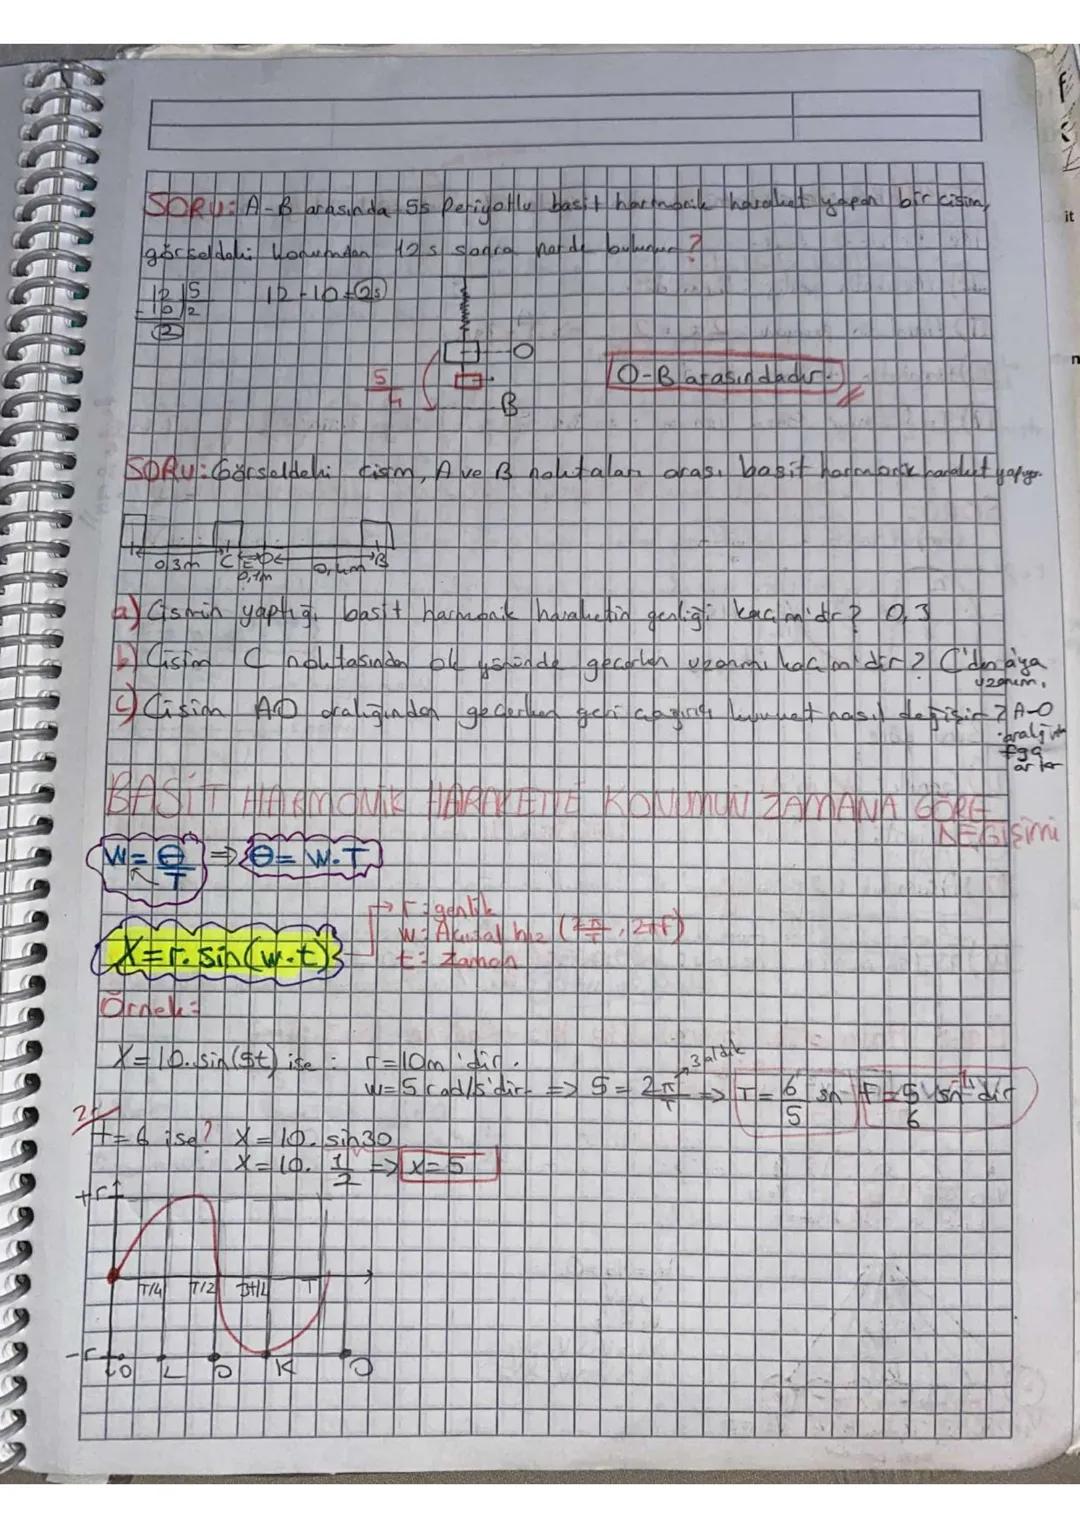 SORU: A-B arasında 5s Periyotlu basit harmonik haraket yapan bir cisim,
görseldeki konumdan 12 s sonra nerde bulunur?
12 | 5
-10 | 2
2
12-10=2s
O
5/4
B
O-B arasındadır.
SORU: Görseldeki cisim, A ve B noktaları arası basit harmonik haraket yapıyor.
0,3m C O B
0,1m 0,4m
a) Cismin yaptığı basit harmonik haraketin genliği kaç m'dir? 0,3
b) Cisim C noktasından ok yönünde geçerken uzanımı kaç m'dir? C'den a'ya
uzanım,
c) Cisim AO aralığından geçerken geri çağırıcı kuvvet nasıl değişir? A-O
aralığı
fgg
artar
BASİT HARMONİK HARAKETTE KONUMUN ZAMANA GÖRE
DEĞİŞİMİ
W = θ/T ⇒ θ = W.T
r: genlik
W: Açısal hız (2π/T, 2πf)
t: zaman
X=r.sin(w.t)
Örnek:
X=10.sin(5t) ise: r=10m'dir.
3 aldık
w=5 rad/s'dir. ⇒ 5=2π/T ⇒ T=6/5 sn F=5/6 sn⁻¹ dir
t=6 ise? X=10.sin30
X=10. 1/2 ⇒ x=5
+r
T/4 T/2 3T/4 T
-r
O L O K O